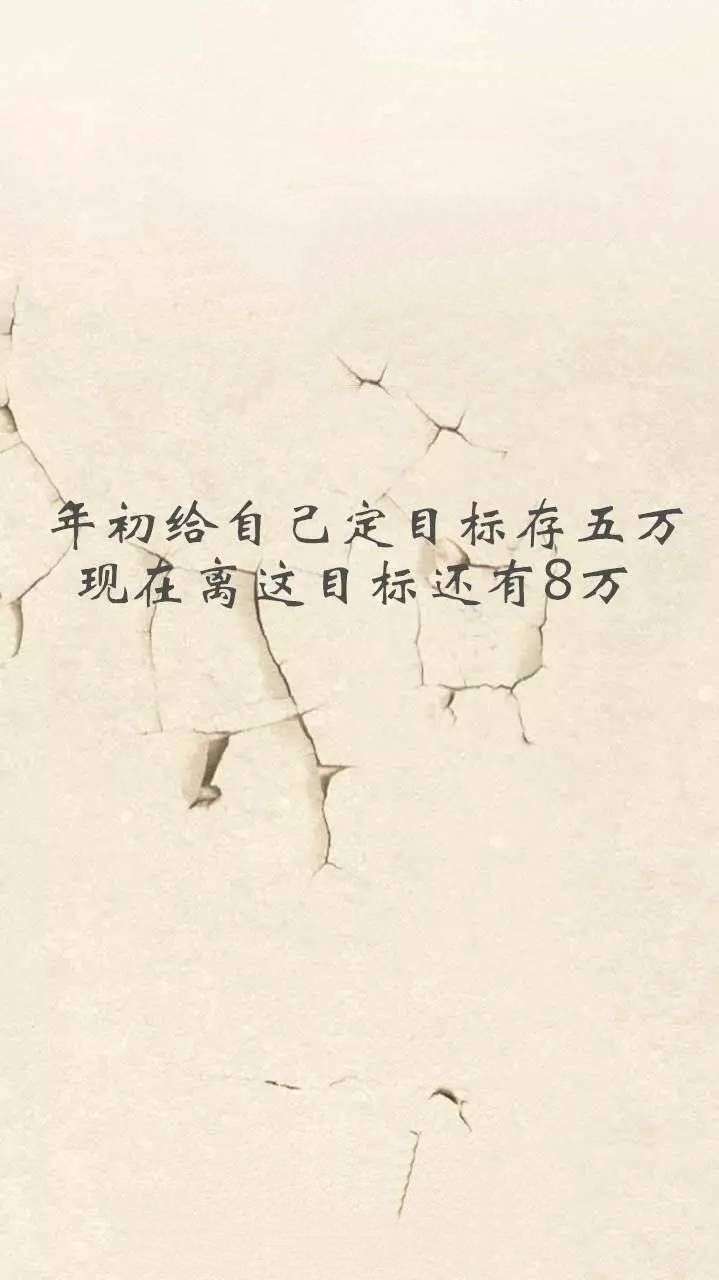 年初给自己定目标存五万
现在离这目标还有8万